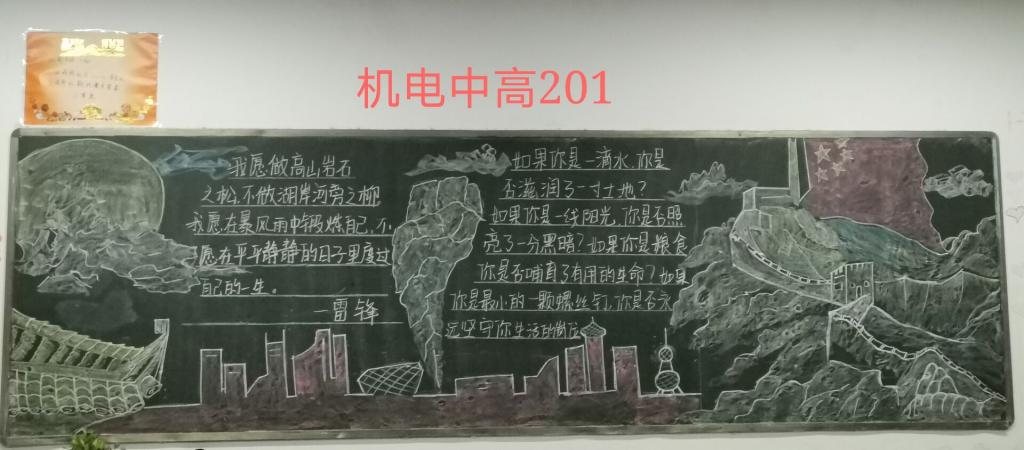 机电中高201
我愿做高山岩石
之松,不做湖岸河旁之柳
我愿在暴风雨中锻炼自己,不
愿在平平静静的日子里度过
自己的一生。
一雷锋
如果你是一滴水,你是
否滋润了一寸土地?
如果你是一线阳光,你是否照
亮了一分黑暗?如果你是粮食
你是否哺育了有用的生命?如果
你是最小的一颗螺丝钉,你是否永
远坚守你生活的岗位